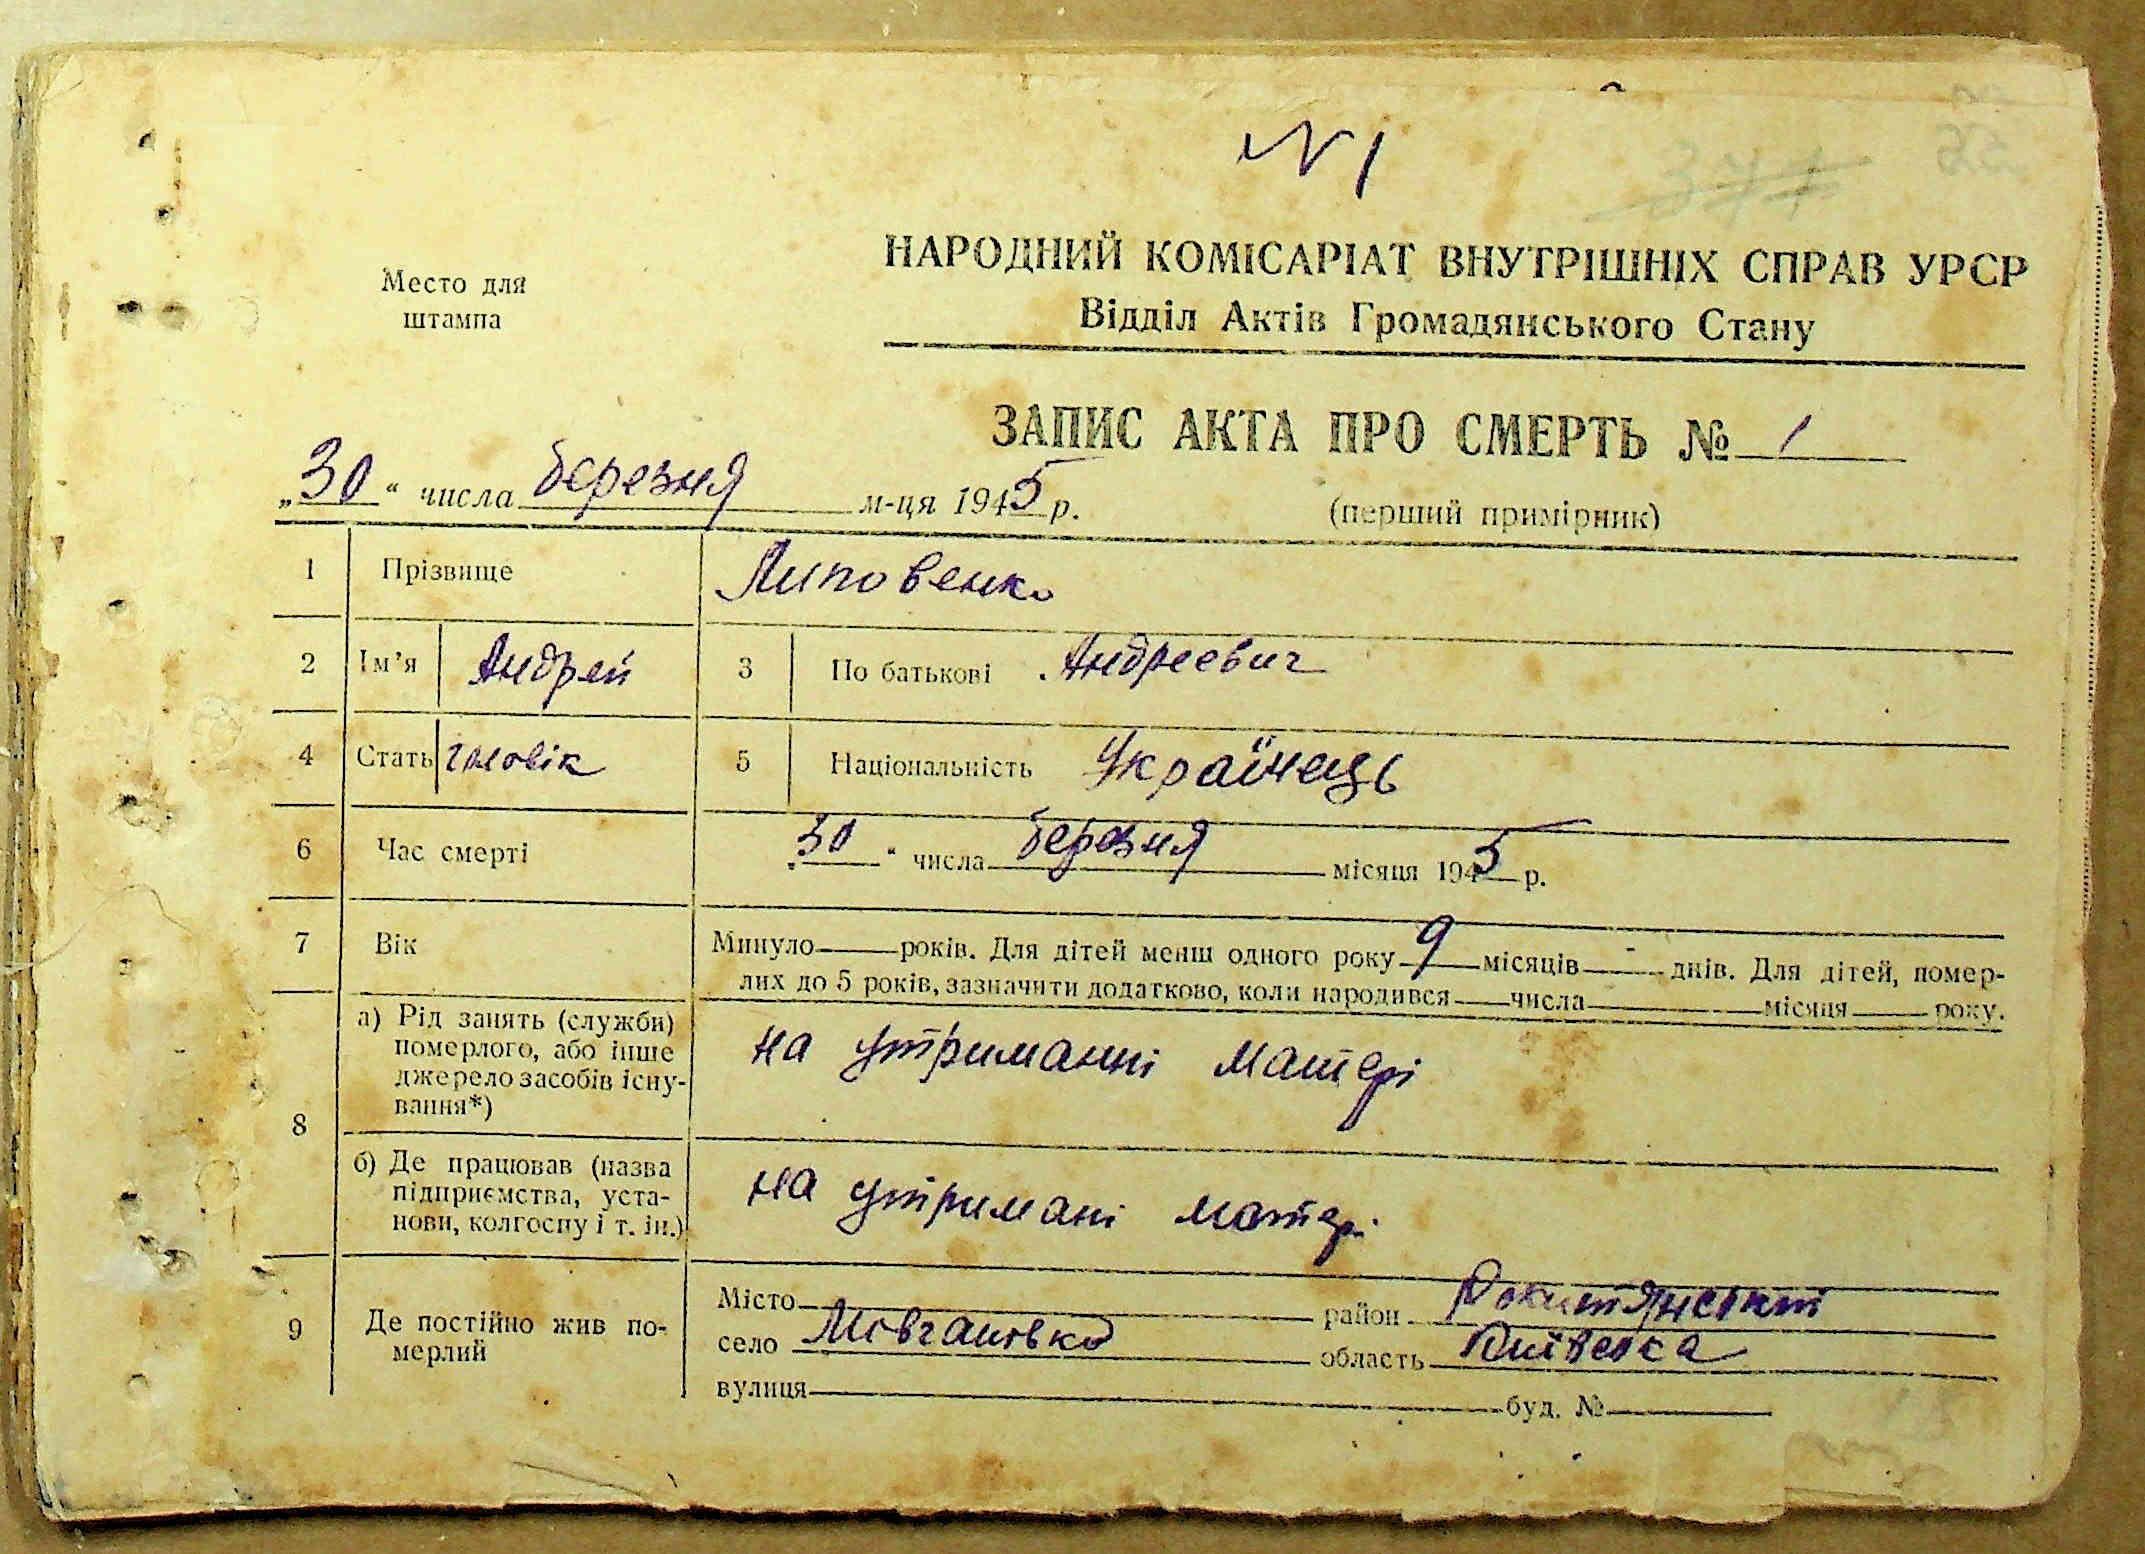 № 1
НАРОДНИЙ КОМІСАРІАТ ВНУТРІШНІХ СПРАВ УРСР
Место для
штампа
Відділ Актів Громадянського Стану
ЗАПИС АКТА ПРО СМЕРТЬ № 1
„30“ числа березня м-ця 1945 р.
(перший примірник)
1 Прізвище Липовенко
2 Ім’я Андрей 3 По батькові Андреевич
4 Стать чоловік 5 Національність Українець
6 Час смерті „30“ числа березня місяця 1945 р.
7 Вік Минуло ____ років. Для дітей менш одного року 9 місяців - днів. Для дітей, помер-
лих до 5 років, зазначити додатково, коли народився ____ числа ____ місяця ____ року.
8 а) Рід занять (служби)
померлого, або інше
джерело засобів існу-
вання*)
на утриманні матері
б) Де працював (назва
підприємства, уста-
нови, колгоспу і т. ін.)
на утримані матері
9 Де постійно жив по-
мерлий
Місто ____ район Рокитянський
село Мовчановка область Київска
вулиця ____ буд. № ____